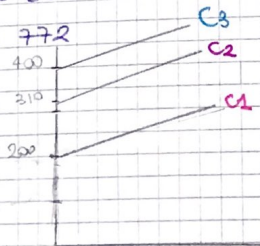 C3
772
C2
400
310
C1
200